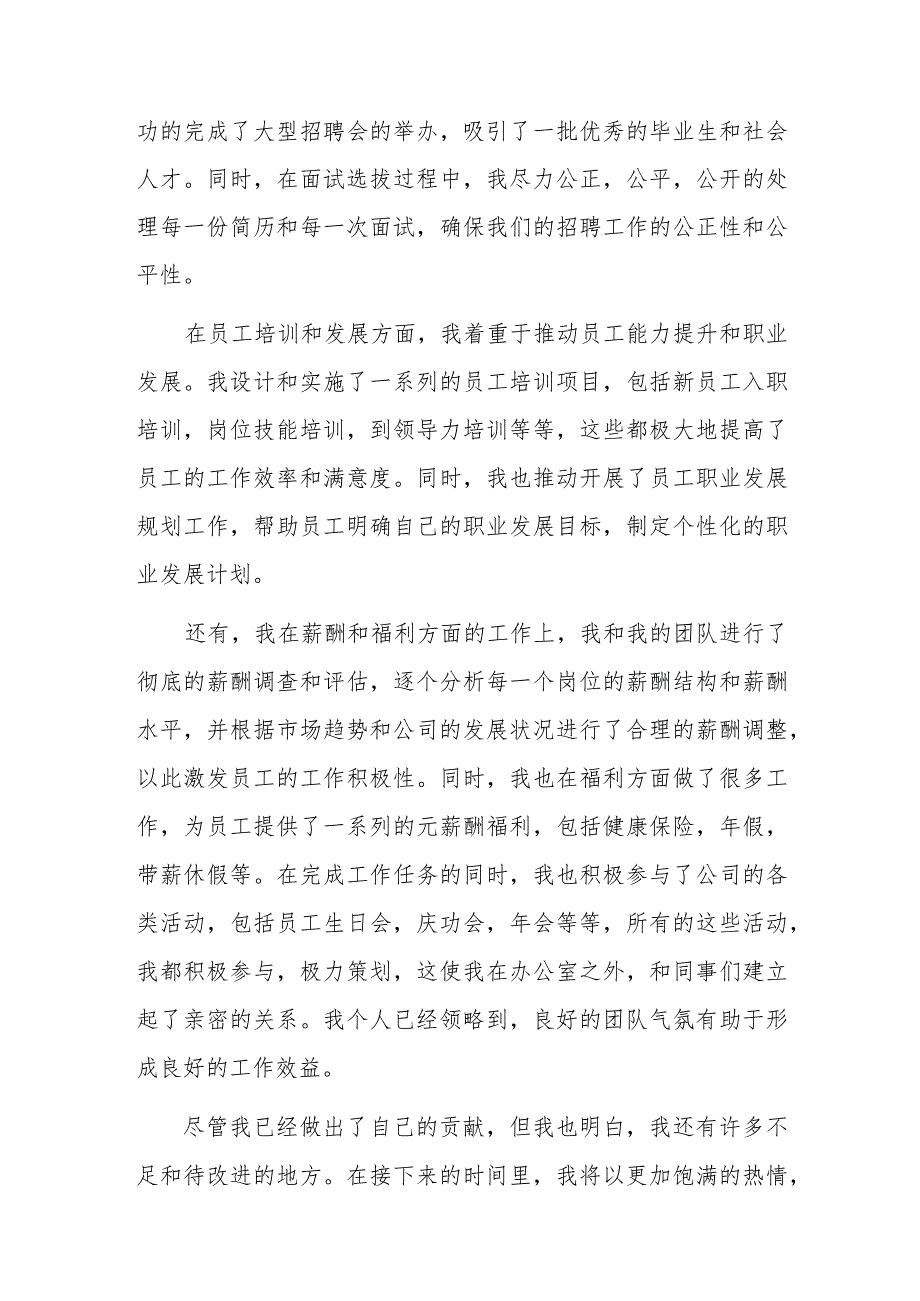 功的完成了大型招聘会的举办，吸引了一批优秀的毕业生和社会
人才。同时，在面试选拔过程中，我尽力公正，公平，公开的处
理每一份简历和每一次面试，确保我们的招聘工作的公正性和公
平性。
在员工培训和发展方面，我着重于推动员工能力提升和职业
发展。我设计和实施了一系列的员工培训项目，包括新员工入职
培训，岗位技能培训，到领导力培训等等，这些都极大地提高了
员工的工作效率和满意度。同时，我也推动开展了员工职业发展
规划工作，帮助员工明确自己的职业发展目标，制定个性化的职
业发展计划。
还有，我在薪酬和福利方面的工作上，我和我的团队进行了
彻底的薪酬调查和评估，逐个分析每一个岗位的薪酬结构和薪酬
水平，并根据市场趋势和公司的发展状况进行了合理的薪酬调整，
以此激发员工的工作积极性。同时，我也在福利方面做了很多工
作，为员工提供了一系列的元薪酬福利，包括健康保险，年假，
带薪休假等。在完成工作任务的同时，我也积极参与了公司的各
类活动，包括员工生日会，庆功会，年会等等，所有的这些活动，
我都积极参与，极力策划，这使我在办公室之外，和同事们建立
起了亲密的关系。我个人已经领略到，良好的团队气氛有助于形
成良好的工作效益。
尽管我已经做出了自己的贡献，但我也明白，我还有许多不
足和待改进的地方。在接下来的时间里，我将以更加饱满的热情，